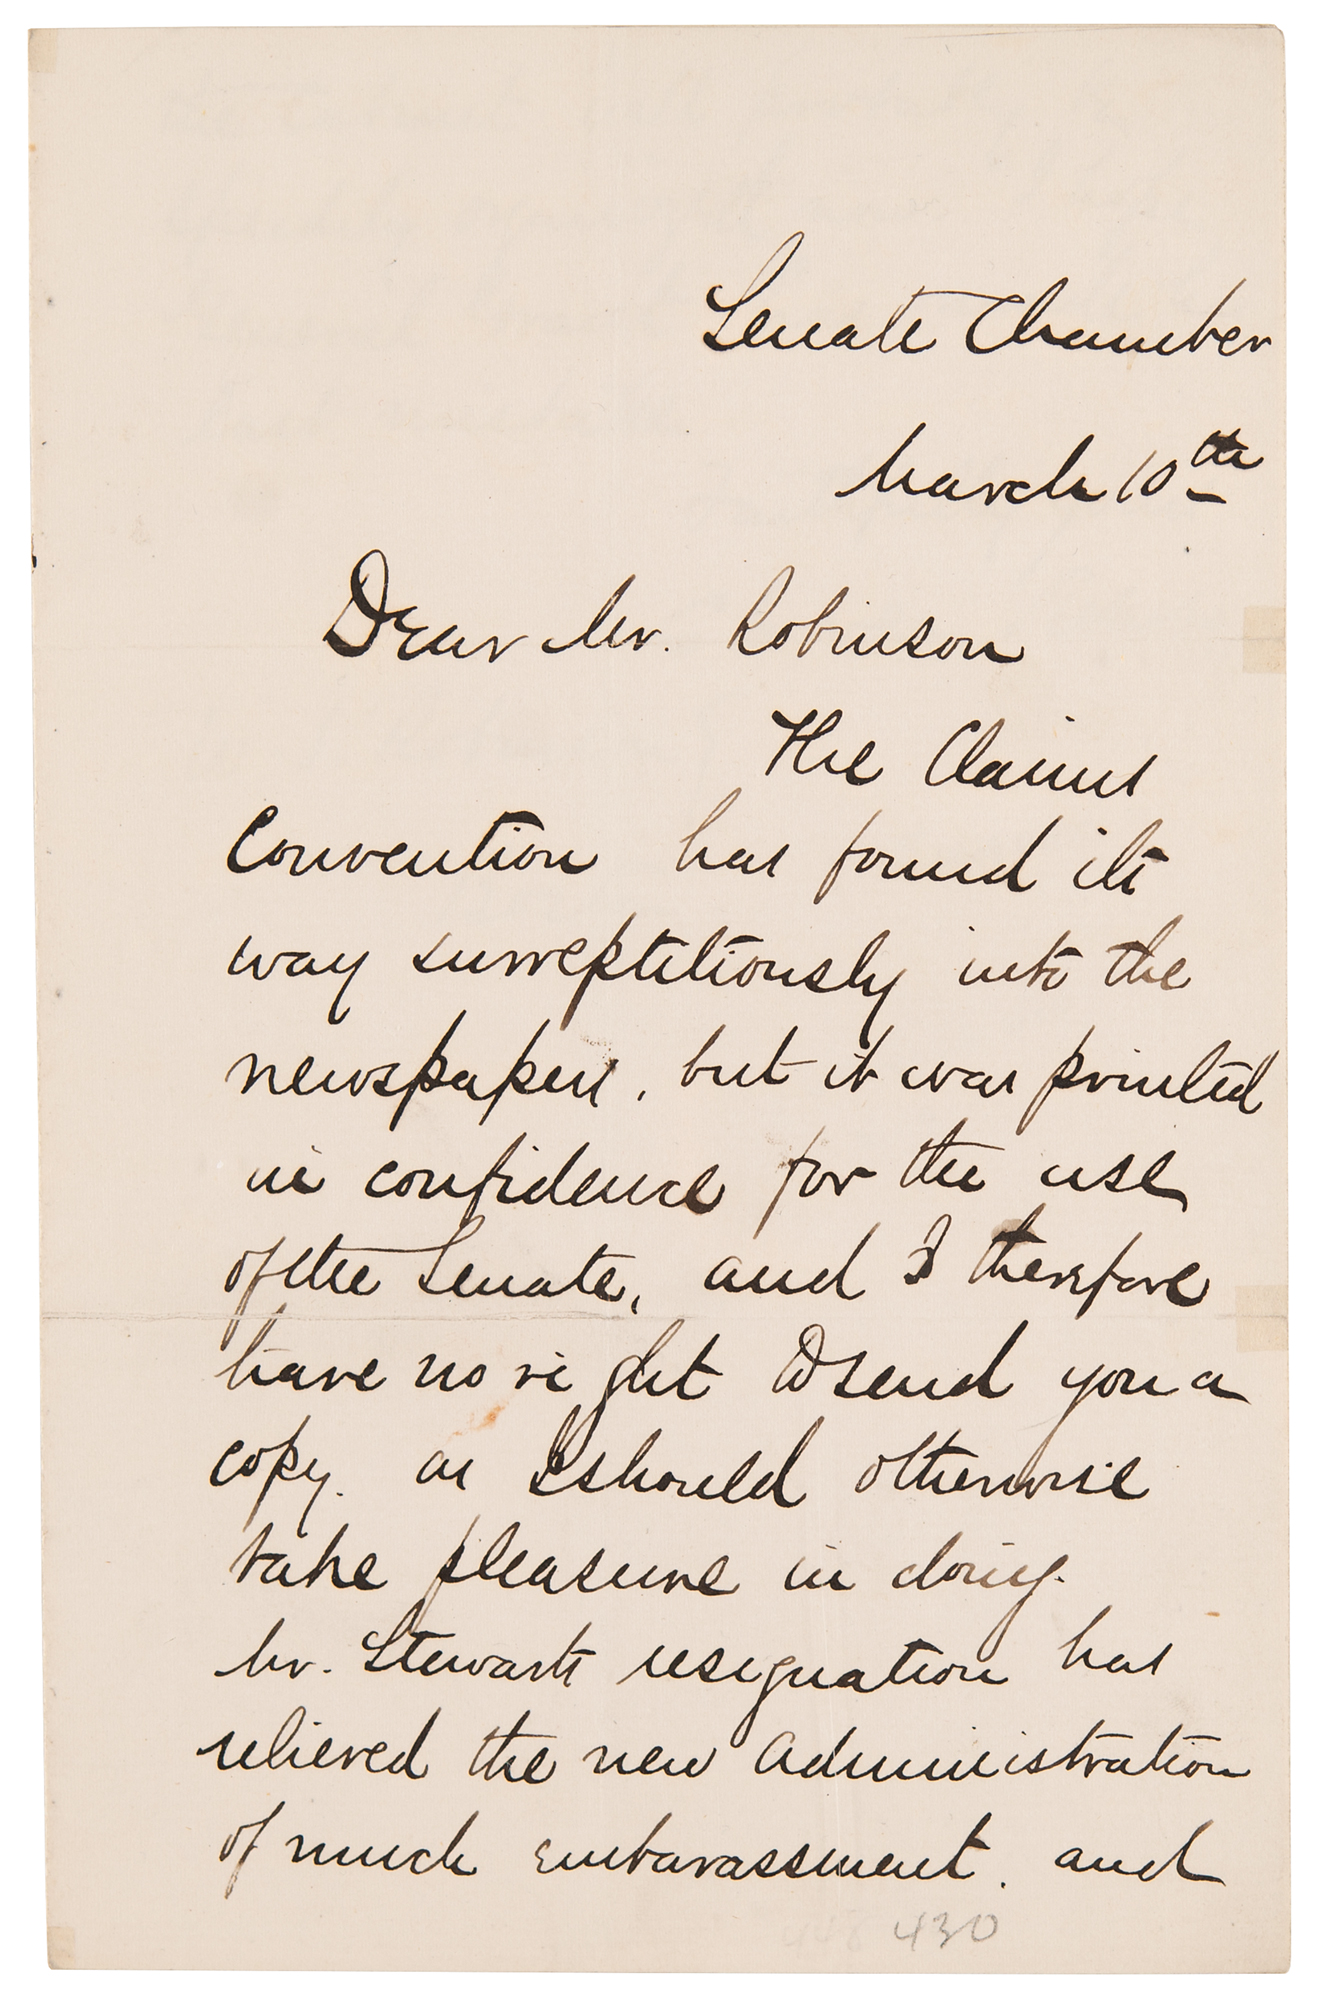 Senate Chamber
March 10th
Dear Mr. Robinson
The Claims
Convention has found its
way surreptitiously into the
newspapers, but it was printed
in confidence for the use
of the Senate, and I therefore
have no right to send you a
copy. as I should otherwise
take pleasure in doing.
Mr. Stewarts resignation has
relieved the new Administration
of much embarassment. and
430